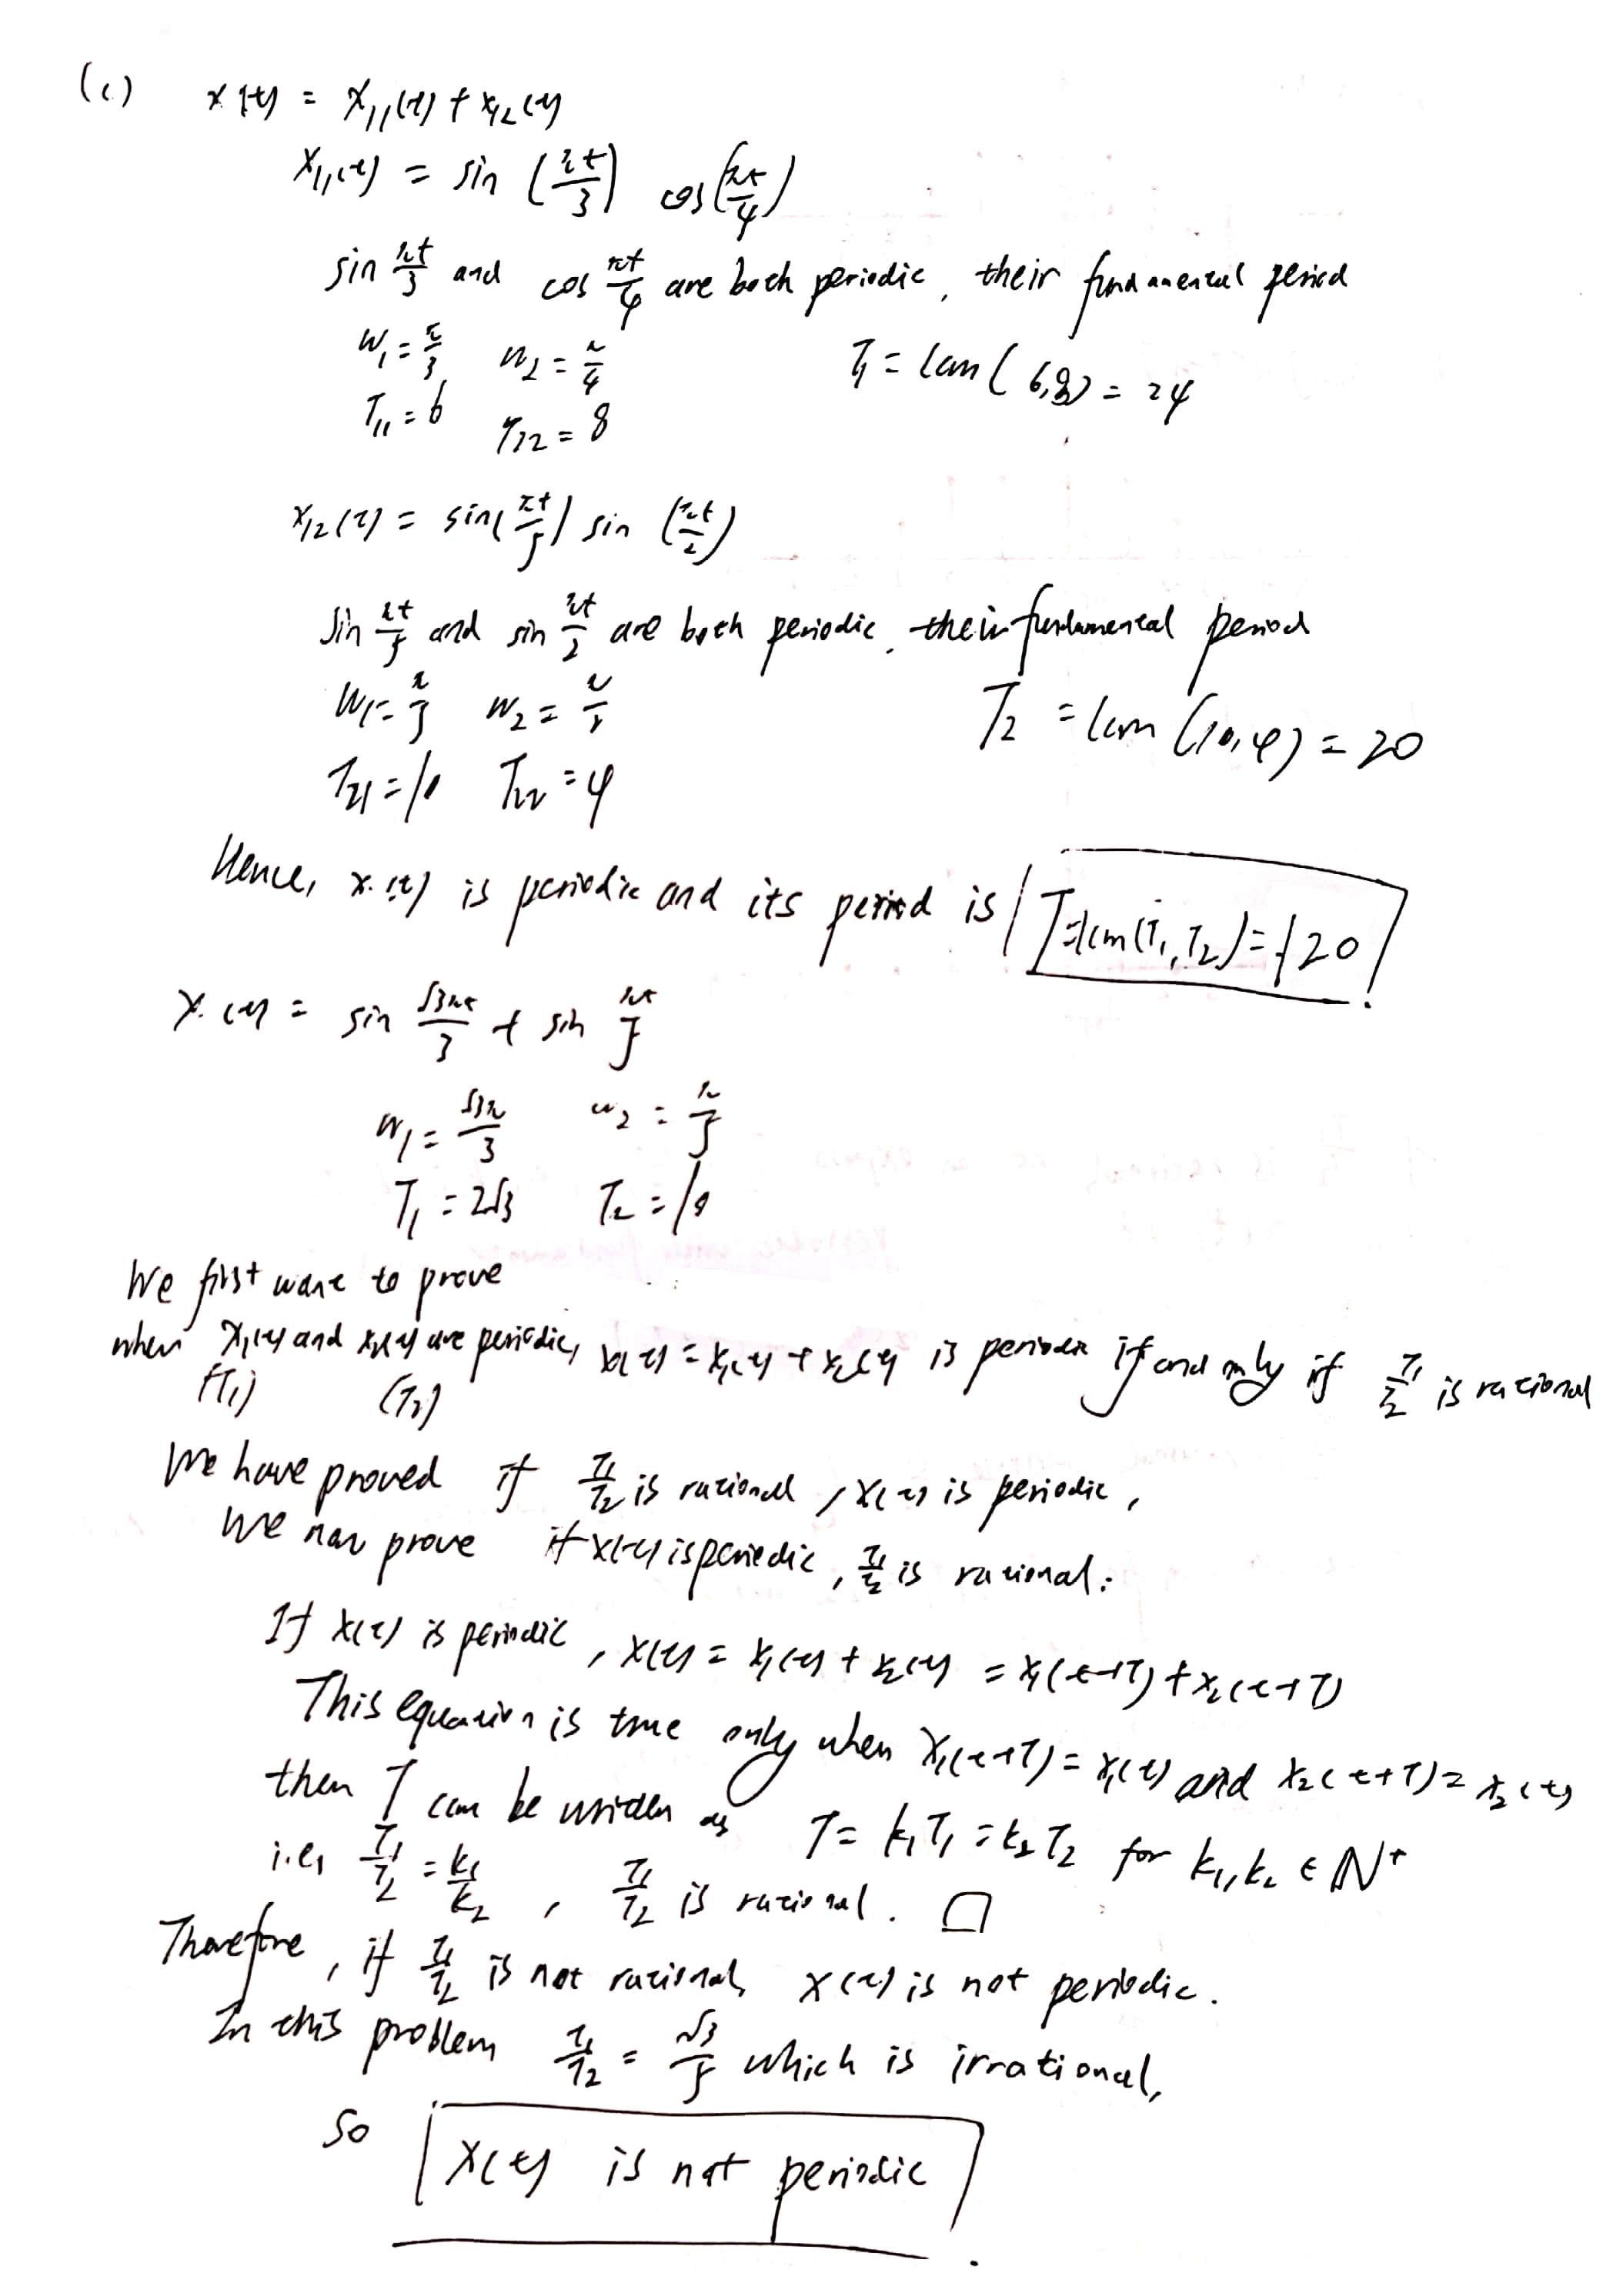 (c) x(t) = x₁₁(t) + x₁₂(t)
x₁₁(t) = sin (πt/3) cos (πt/4)
sin πt/3 and cos πt/4 are both periodic, their fundamental period
w₁ = π/3 w₂ = π/4 T₁ = lcm(6,8) = 24
T₁₁ = 6 T₁₂ = 8
x₁₂(t) = sin(πt/5) sin (πt/2)
sin πt/5 and sin πt/2 are both periodic, their fundamental period
w₁ = π/5 w₂ = π/2 T₂ = lcm (10,4) = 20
T₂₁ = 10 T₂₂ = 4
Hence, x(t) is periodic and its period is T = lcm(T₁,T₂) = 120.
x(t) = sin √3πt/3 + sin πt/5
w₁ = √3π/3 w₂ = π/5
T₁ = 2√3 T₂ = 10
We first want to prove
when x₁(t) and x₂(t) are periodic, x(t) = x₁(t) + x₂(t) is periodic if and only if T₁/T₂ is rational
(T₁) (T₂)
We have proved if T₁/T₂ is rational, x(t) is periodic,
We now prove if x(t) is periodic, T₁/T₂ is rational:
If x(t) is periodic, x(t) = x₁(t) + x₂(t) = x₁(t+T) + x₂(t+T)
This equation is true only when x₁(t+T) = x₁(t) and x₂(t+T) = x₂(t)
then T can be written as T = k₁T₁ = k₂T₂ for k₁,k₂ ∈ ℕ⁺
i.e, T₁/T₂ = k₁/k₂, T₁/T₂ is rational. □
Therefore, if T₁/T₂ is not rational, x(t) is not periodic.
In this problem T₁/T₂ = √3/5 which is irrational,
So x(t) is not periodic.